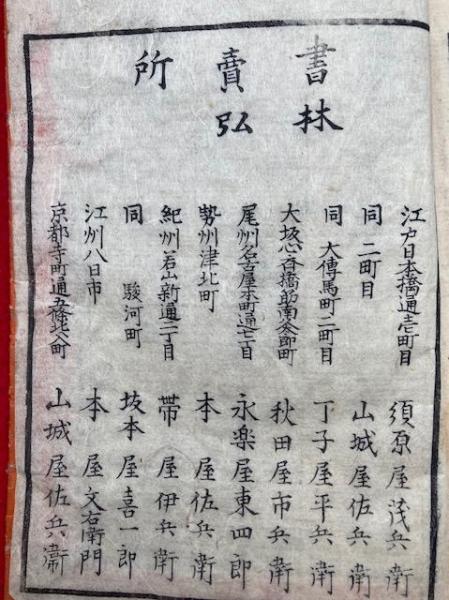 書林
賣弘
所
江戸日本橋通壱町目 須原屋茂兵衛
同 二町目 山城屋佐兵衛
同 大傳馬町二町目 丁子屋平兵衛
大坂心斎橋筋南久太郎町 秋田屋市兵衛
尾州名古屋本町通七丁目 永楽屋東四郎
勢州津北町 本屋佐兵衛
紀州若山新通二丁目 帯屋伊兵衛
同 駿河町 坂本屋喜一郎
江州八日市 本屋文右衛門
京都寺町通五條 町 山城屋佐兵衛